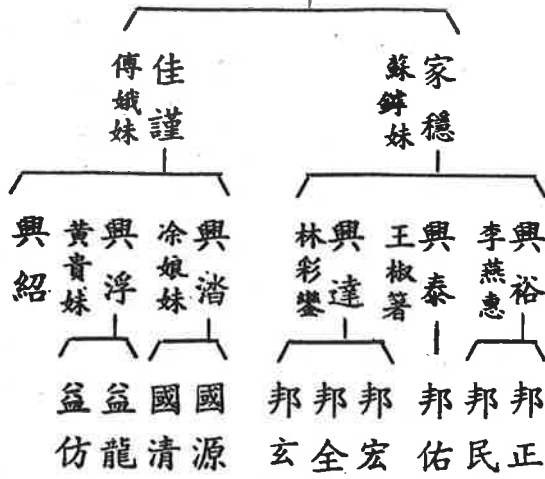 家穩
蘇鏵妹
佳謹
傅娥妹
興裕
李燕惠
興泰
王椒箸
興達
林彩鑾
興湝
凃娘妹
興浮
黃貴妹
興紹
邦正
邦民
邦佑
邦宏
邦全
邦玄
國源
國清
益龍
益仿